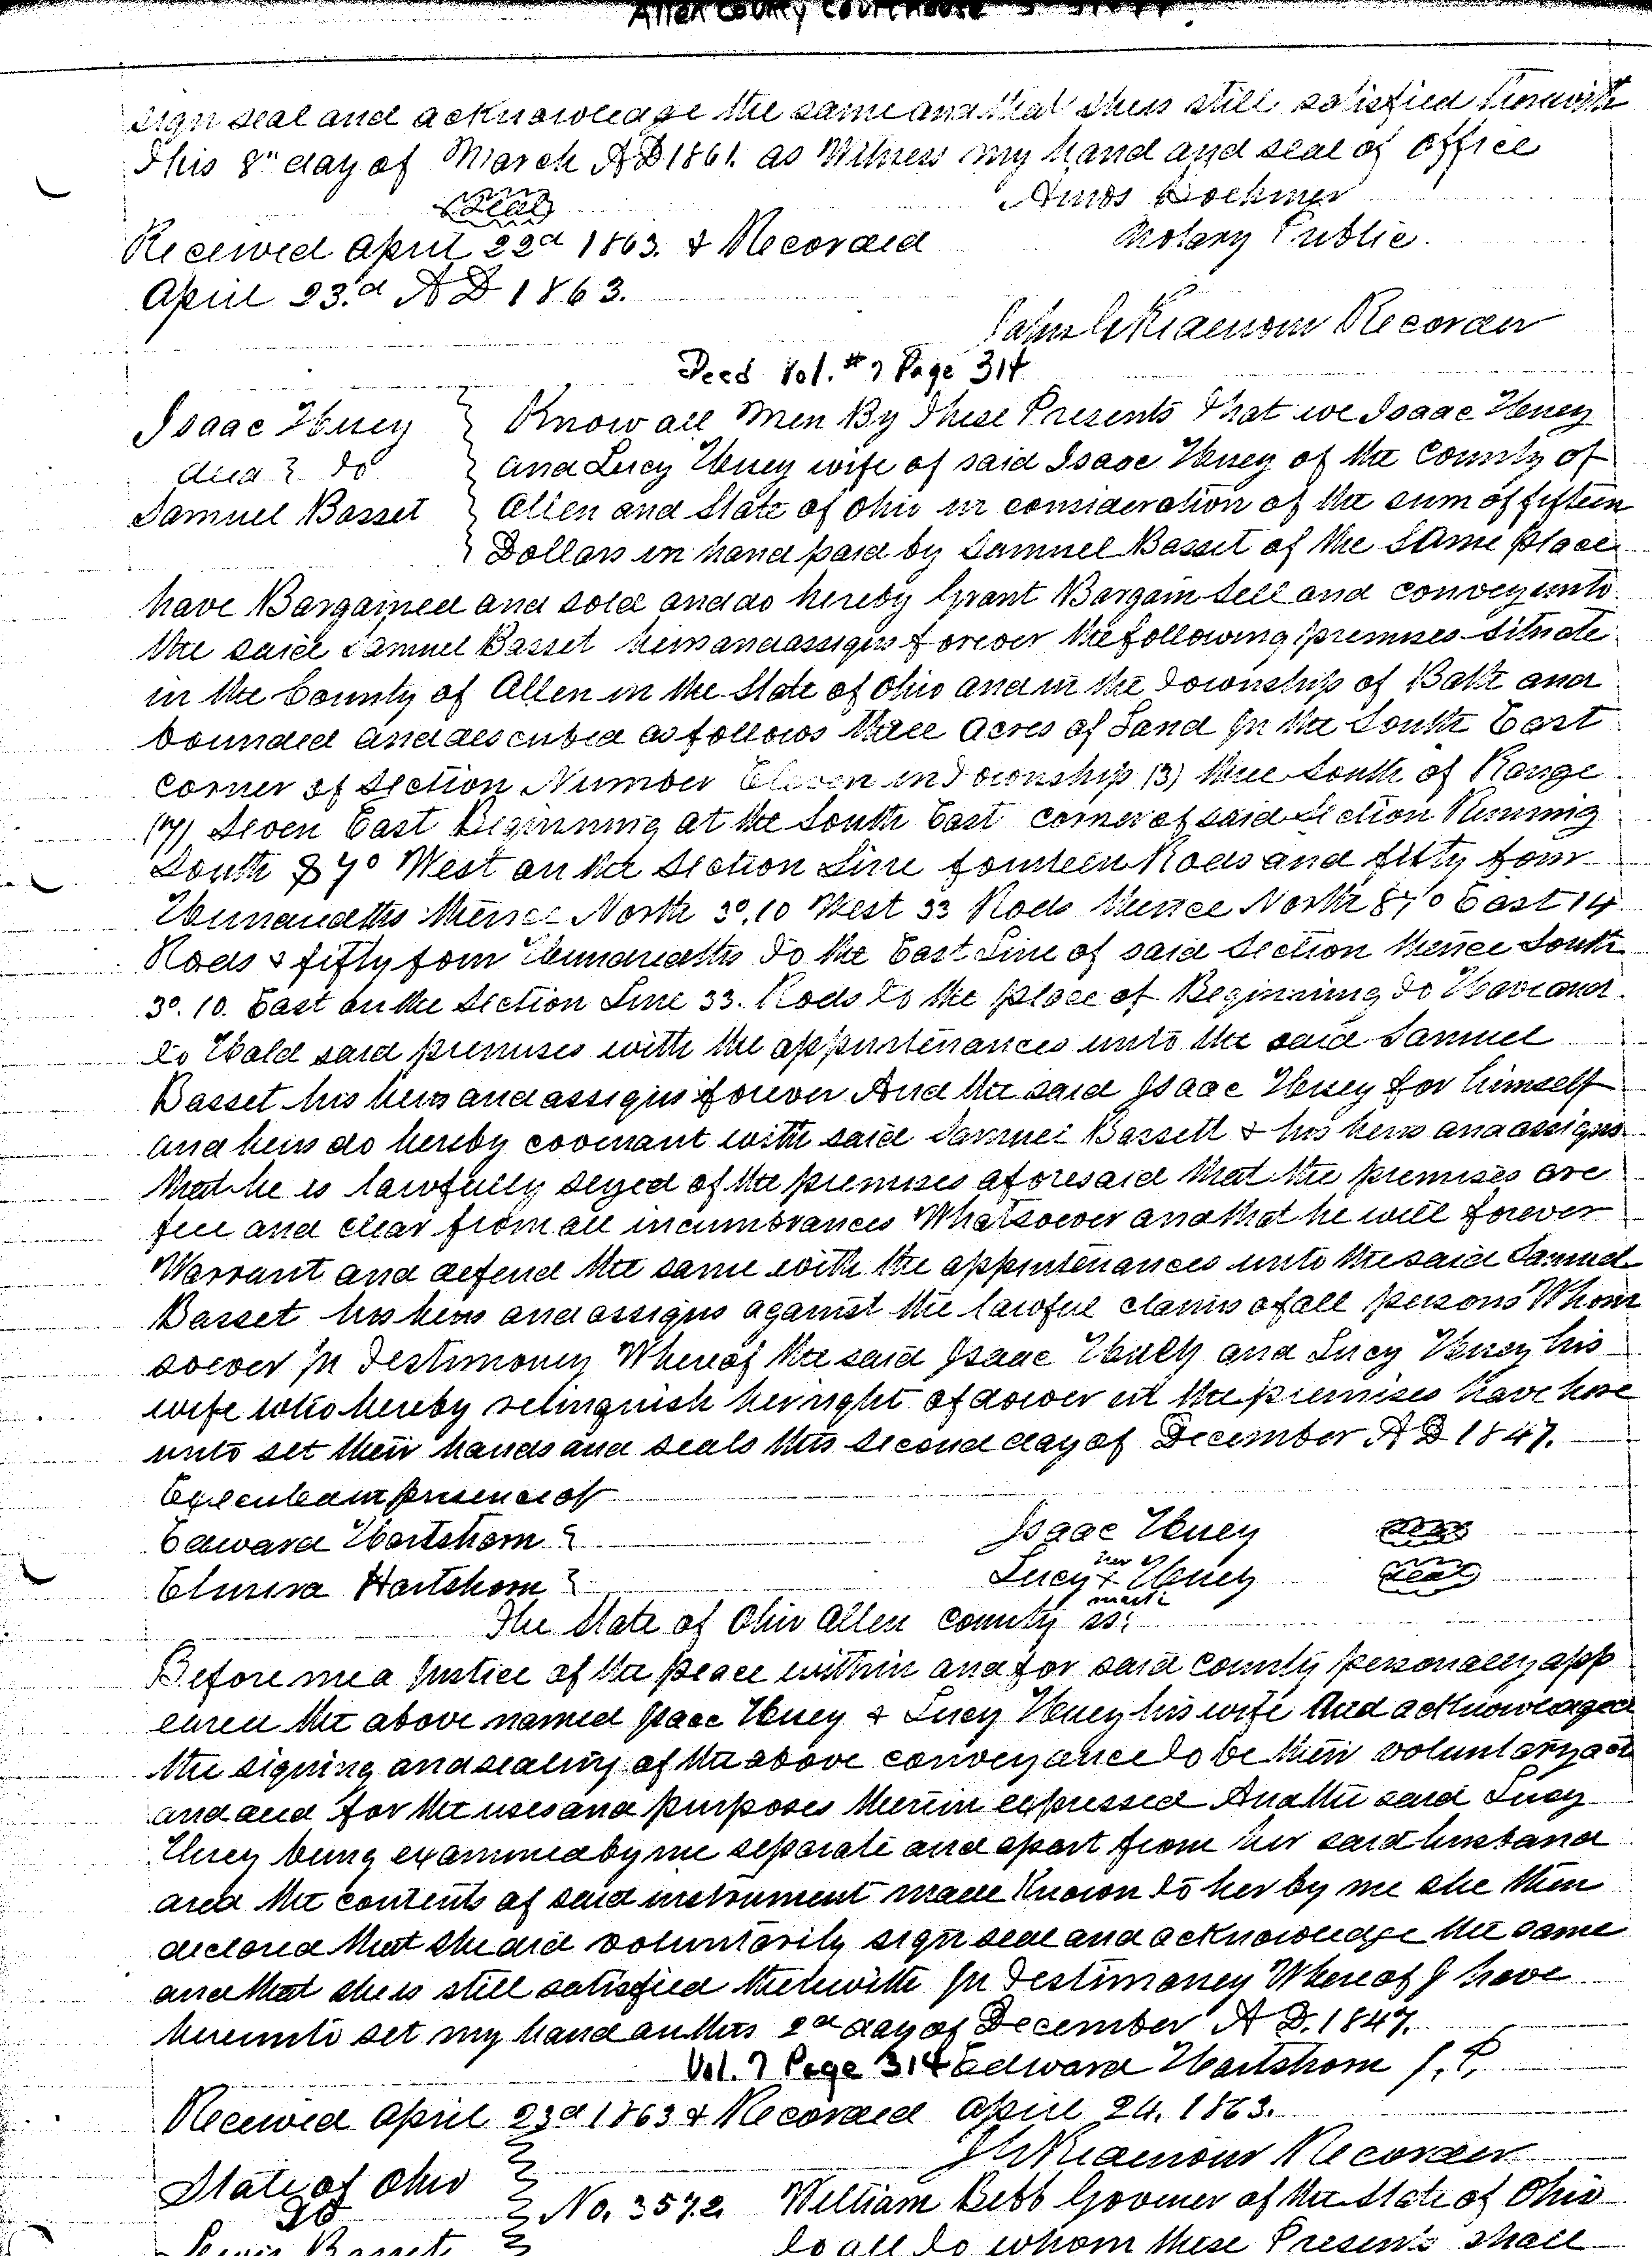 Allen County Courthouse
sign seal and acknowledge the same and that she is still satisfied therewith
This 8th day of March A D 1861. as Witness my hand and seal of office
(Seal)
Amos Boehmer
Received April 22d 1863. & Recorded
Notary Public.
April 23.d A D 1863.
Recorder
Deed Vol. #7 Page 314
Isaac Huey
and } To
Samuel Basset
Know all Men By These Presents That we Isaac Huey
and Lucy Huey wife of said Isaac Huey of the County of
Allen and State of Ohio in consideration of the sum of fifteen
Dollars in hand paid by Samuel Basset of the same place
have Bargained and sold and do hereby Grant Bargain Sell and convey unto
the said Samuel Basset heirs and assigns forever the following premises situate
in the County of Allen in the State of Ohio and in the Township of Bath and
bounded and described as follows three acres of Land In the South East
corner of Section Number Eleven in Township (3) three South of Range
(7) Seven East Beginning at the South East corner of said Section Running
South 87° West on the Section Line fourteen Rods and fifty four
Hundredths thence North 3°.10 West 33 Rods thence North 87° East 14
Rods & fifty four Hundredths To the East Line of said Section thence South
3°. 10. East on the Section Line 33. Rods to the place of Beginning To Have and
to Hold said premises with the appurtenances unto the said Samuel
Basset his heirs and assigns forever And the said Isaac Huey for himself
and heirs do hereby covenant with said Samuel Bassett & his heirs and assigns
that he is lawfully seyed of the premises aforesaid that the premises are
free and clear from all incumbrances Whatsoever and that he will forever
Warrant and defend the same with the appurtenances unto the said Samuel
Basset his heirs and assigns against the lawful claims of all persons Whom
soever In Testimoney Whereof the said Isaac Huey and Lucy Huey his
wife who hereby relinquish her right of dower in the premises have here
unto set their hands and seals this second day of December A D 1847.
Executed in presence of
Edward Hartshorn }
Isaac Huey (Seal)
Elmira Hartshorn }
Lucy her x mark Huey (Seal)
The State of Ohio Allen County ss:
Before me a Justice of the peace within and for said county personally app
eared the above named Isaac Huey & Lucy Huey his wife And acknowledged
the signing and sealing of the above conveyance to be their voluntary act
and deed for the uses and purposes therein expressed And the said Lucy
Huey being examined by me separate and apart from her said husband
and the contents of said instrument made Known to her by me she then
declared that she did voluntarily sign seal and acknowledge the same
and that she is still satisfied therewith In Testimoney Whereof I have
hereunto set my hand on this 2nd day of December A D. 1847.
Vol. 7 Page 314 Edward Hartshorn J. P.
Received April 23d 1863 & Recorded April 24. 1863.
Recorder
State of Ohio
To
Lewis Basset
No. 3572.
William Bebb Govener of the State of Ohio
to all to whom these Presents shall